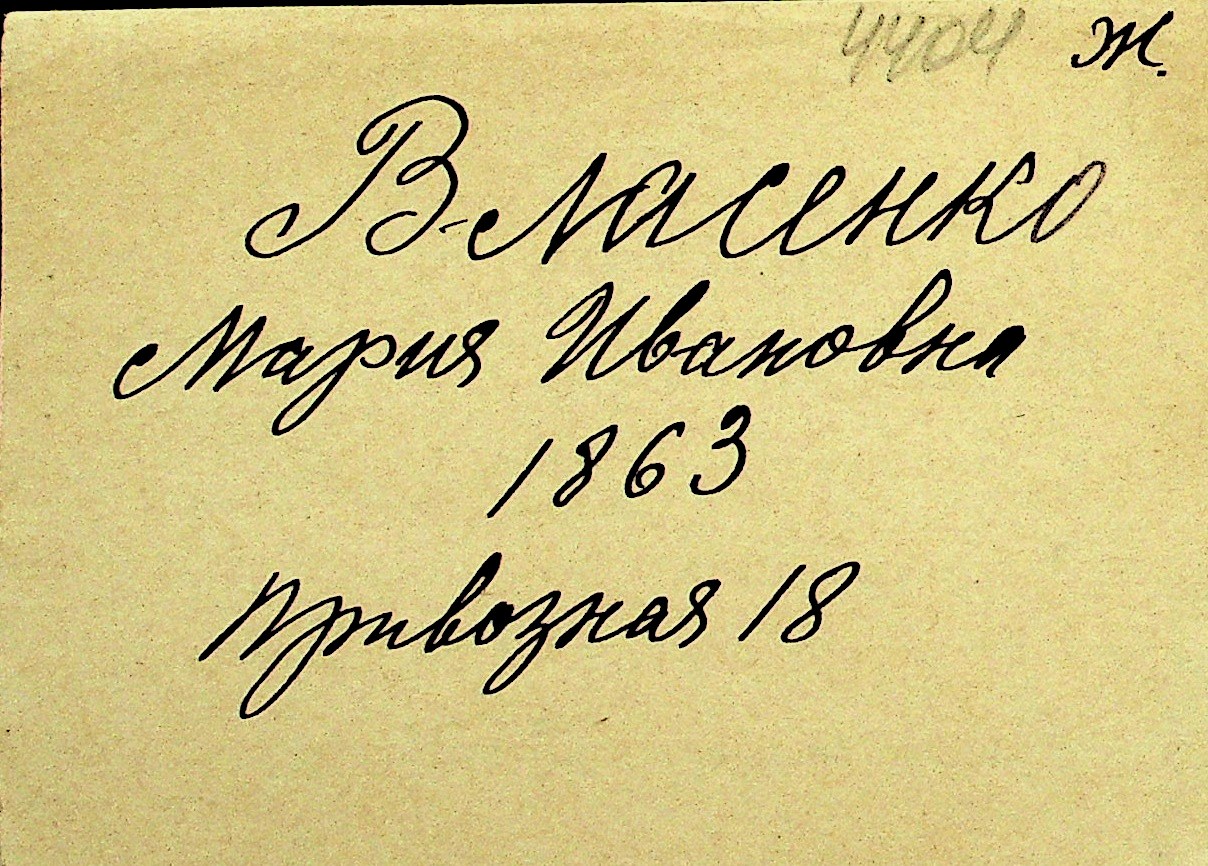 4404 Ж.
Власенко
Мария Ивановна
1863
Привозная 18